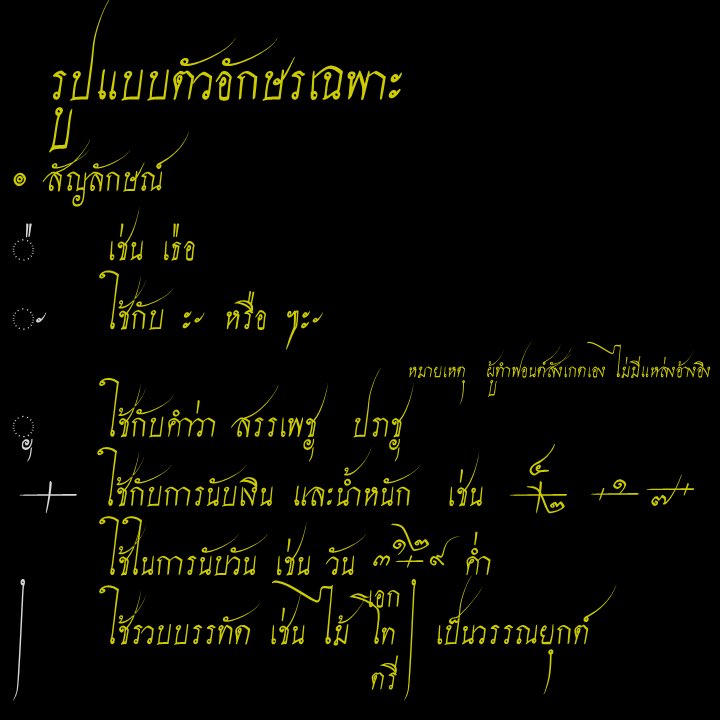 รูปแบบตัวอักษรเฉพาะ
๏ สัญลักษณ์
เช่น เธ่อ
ใช้กับ ะ หรือ ๆะ
หมายเหตุ ผู้ทำฟอนต์สังเกตเอง ไม่มีแหล่งอ้างอิง
ใช้กับคำว่า สรรเพชฺ ปราชฺ
ใช้กับการนับเงิน และน้ำหนัก เช่น ๔ ๒ ๑ ๗
ใช้ในการนับวัน เช่น วัน ๓ ๑๒ ๙ ค่ำ
ใช้รวบบรรทัด เช่น ไม้ เอก โท ตรี เป็นวรรณยุกต์